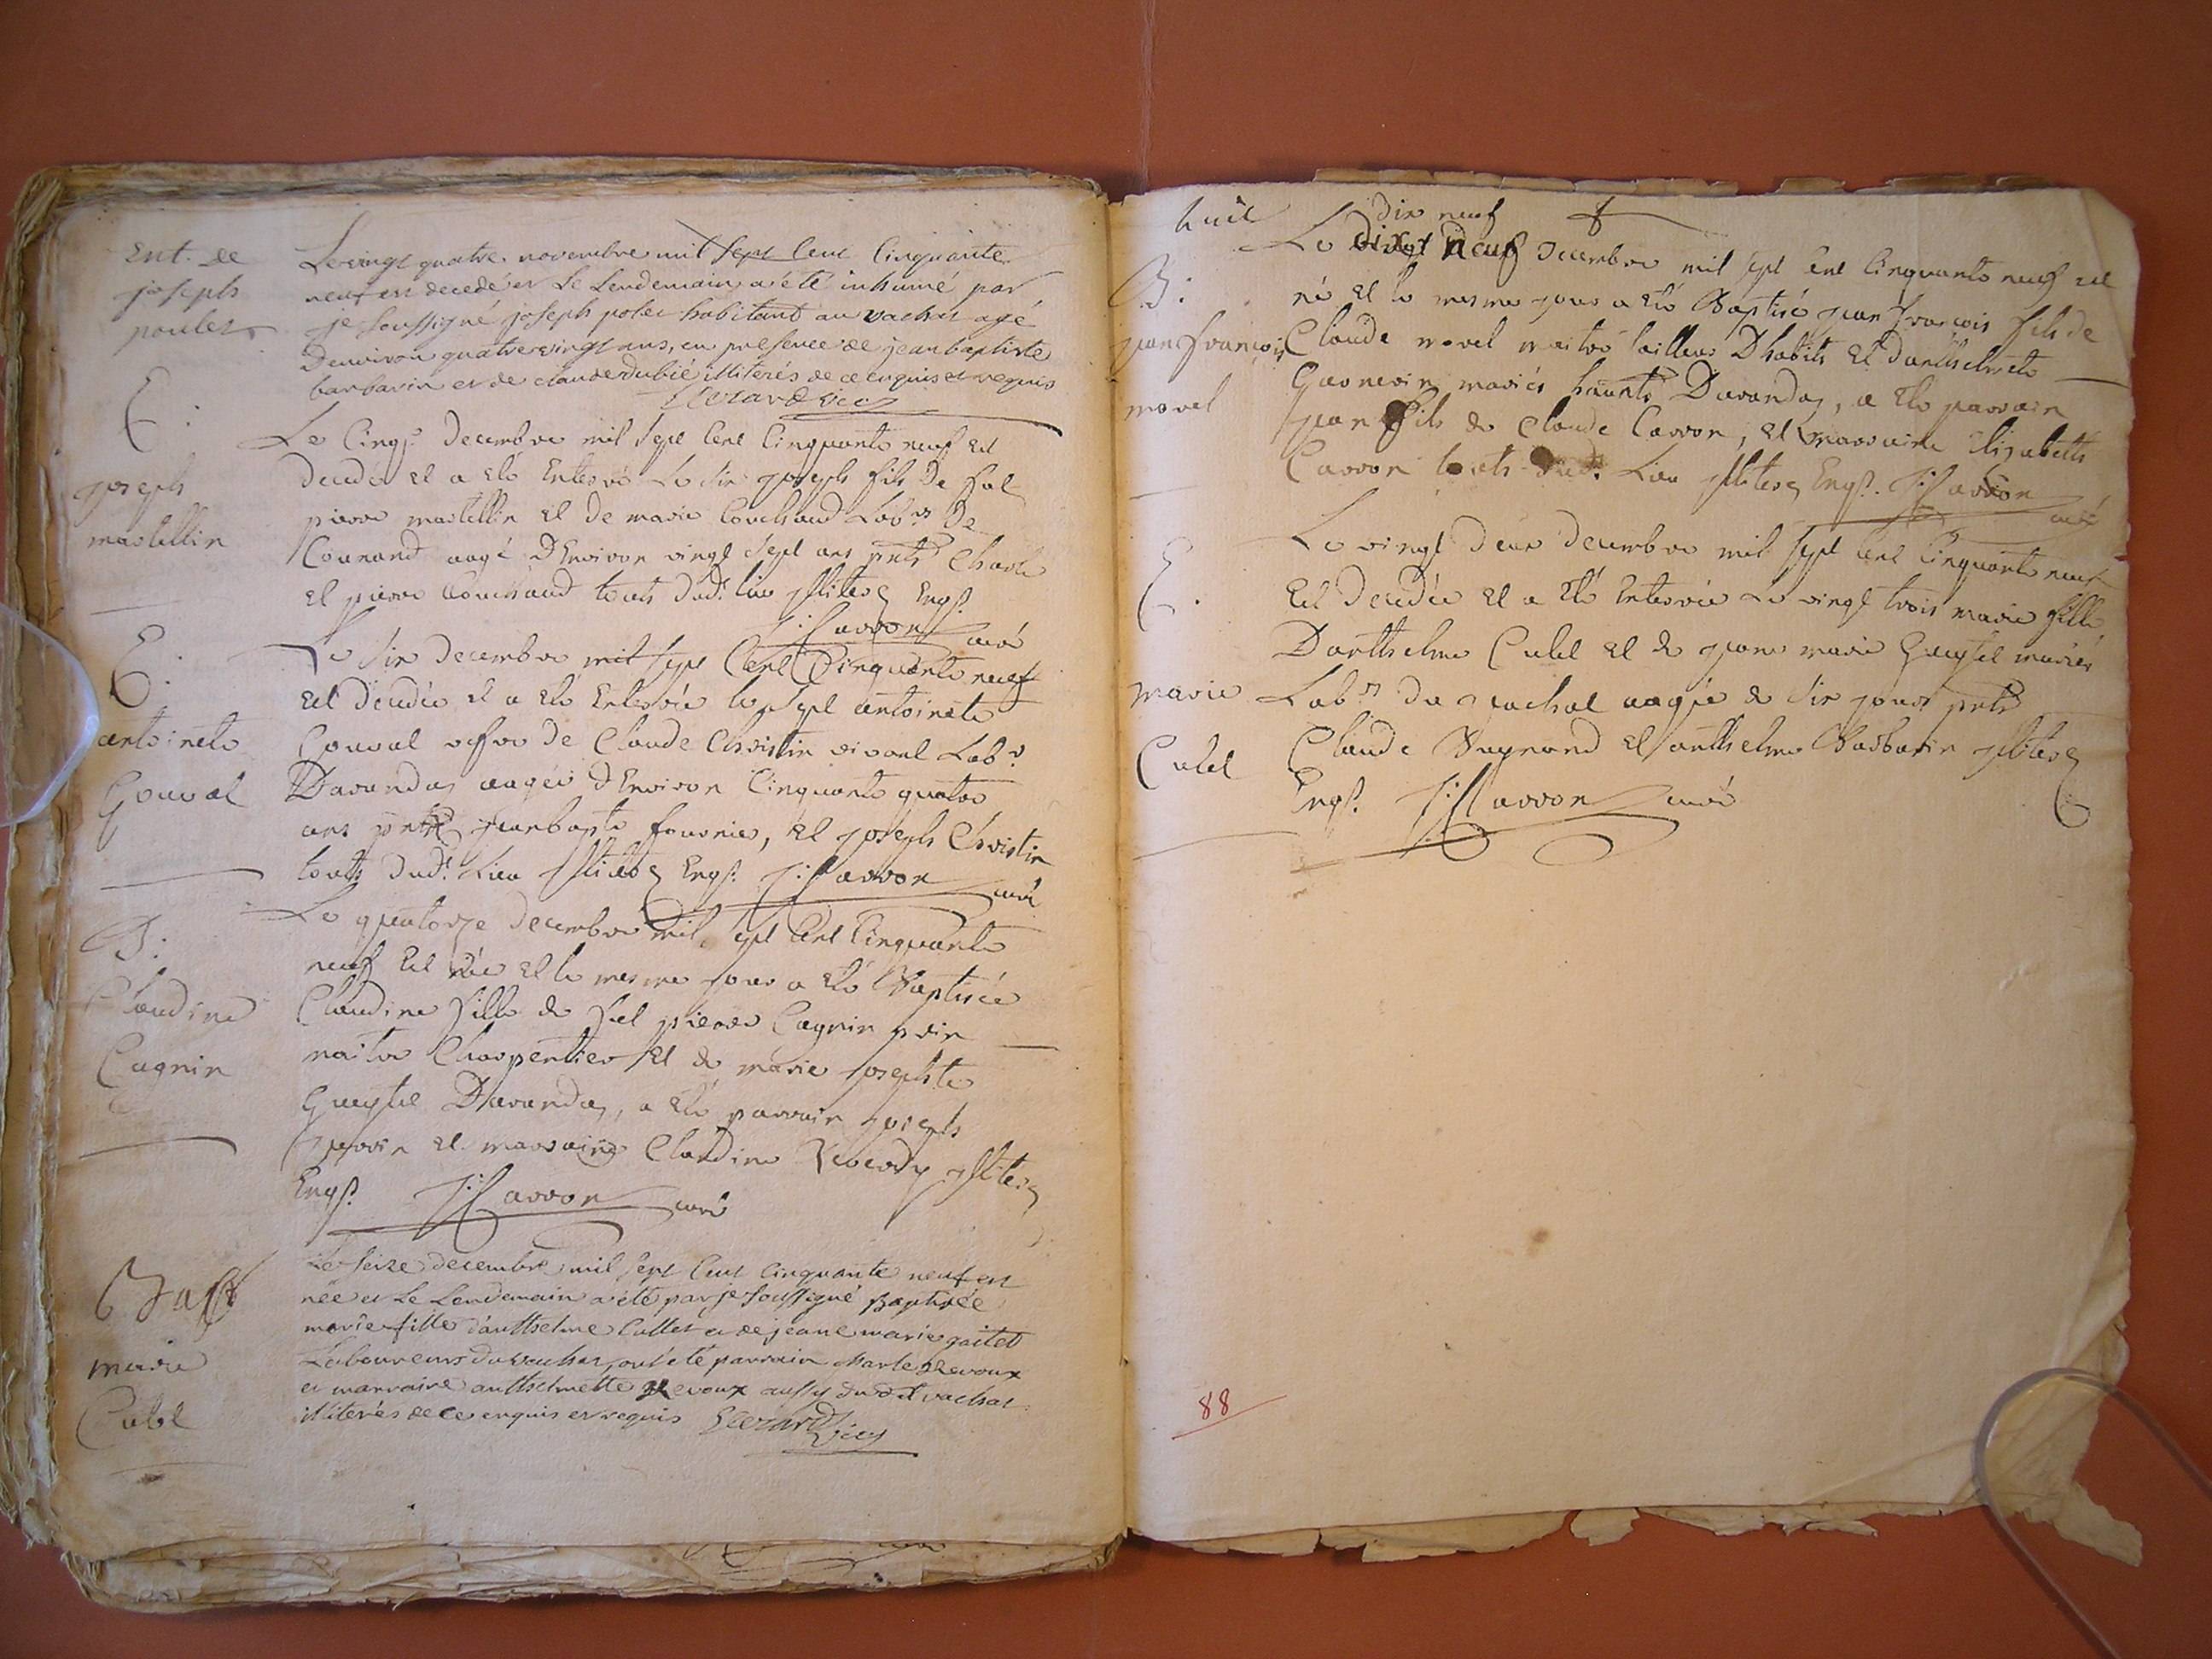 Ent. de
joseph
poulet
Le vingt quatre novembre mil sept cent cinquante
neuf est decedé et le lendemain a été inhumé par
je soussigné joseph polet habitant au vachat agé
Denviron quatrevingt ans, en presence de jean baptiste
barbarin et de claude dubié illiterés de ce enquis et requis
E:
joseph
martellin
Le cinq decembre mil sept cent cinquante neuf est
decedé et a eté enterré le six joseph fils de
pierre martellin et de marie couchaud Lab.rs De
Counand aagé D'Environ vingt sept ans pnts Charle
et pierre couchaud touts dud. lieu illiter Enqs.
J: Carron curé
E:
antoinete
Gouval
Le six decembre mil sept cent cinquante neuf
est decedée et a eté enterrée le sept antoinete
Gouval vefve de Claude Christin vivant Lab.r
Davandas aagée d'Environ cinquante quatre
ans pnts jeanbapte fournier, et joseph Christin
touts dud. Lieu illiter Enqs. J: Carron curé
B:
Claudine
Cagnin
Le quatorze decembre mil sept cent cinquante
neuf est née et le mesme jour a eté Baptisée
Claudine fille de pierre Cagnin
maitre Charpentier et de marie josephte
Davandas, a eté parrain joseph
et marraine Claudine illiter
Enqs. J: Carron curé
Bapt
marie
Cutet
Le seize decembre mil sept cent cinquante neuf est
née et le lendemain a été par je soussigné Baptisée
marie fille d'anthelme Cuttet et de jeane marie gaitet
Laboureurs du vachat, ont été parrain charle Revoux
et marraine anthelmette Revoux aussy dudit vachat
illiterés de ce enquis et requis
huit
dix neuf
B:
jeanfrançois
morel
Le dix neuf Decembre mil sept cent cinquante neuf est
né et le mesme jour a eté Baptisé jean françois fils de
Claude morel maitre tailleur D'habits et d'anthelmete
mariés Davandas, a eté parrain
jean fils de Claude Carron, et marraine Elisabeth
Carron touts dud. Lieu illiter Enqs. J: Carron
curé
E.
marie
Cutet
Le vingt deux decembre mil sept cent cinquante neuf
est decedée et a eté enterrée le vingt trois marie fille
Danthelme Cutet et de jeane marie mariés
Lab.rs du vachat aagée de six jours pnts
Claude et anthelme Barbarin illiter
Enqs. J: Carron curé
88